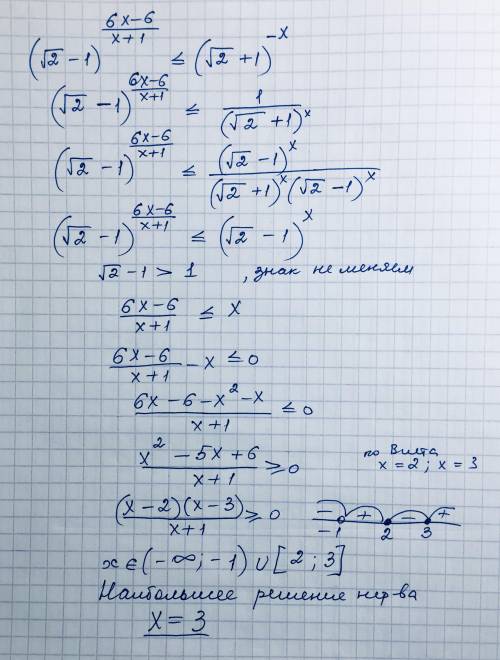 (√2 − 1)^((6x−6)/(x+1)) ≤ (√2 + 1)^(−x)
(√2 − 1)^((6x−6)/(x+1)) ≤ 1/(√2 + 1)^x
(√2 − 1)^((6x−6)/(x+1)) ≤ (√2 − 1)^x/((√2 + 1)^x (√2 − 1)^x)
(√2 − 1)^((6x−6)/(x+1)) ≤ (√2 − 1)^x
√2 − 1 > 1 , знак не меняем
(6x−6)/(x+1) ≤ x
(6x−6)/(x+1) − x ≤ 0
(6x − 6 − x² − x)/(x+1) ≤ 0
(x² − 5x + 6)/(x+1) ≥ 0
по Виета
x = 2 ; x = 3
(x−2)(x−3)/(x+1) ≥ 0
− + − +
−1 2 3
x ∈ (−∞; −1) ∪ [2 ; 3]
Наибольшее решение нер-ва
x = 3